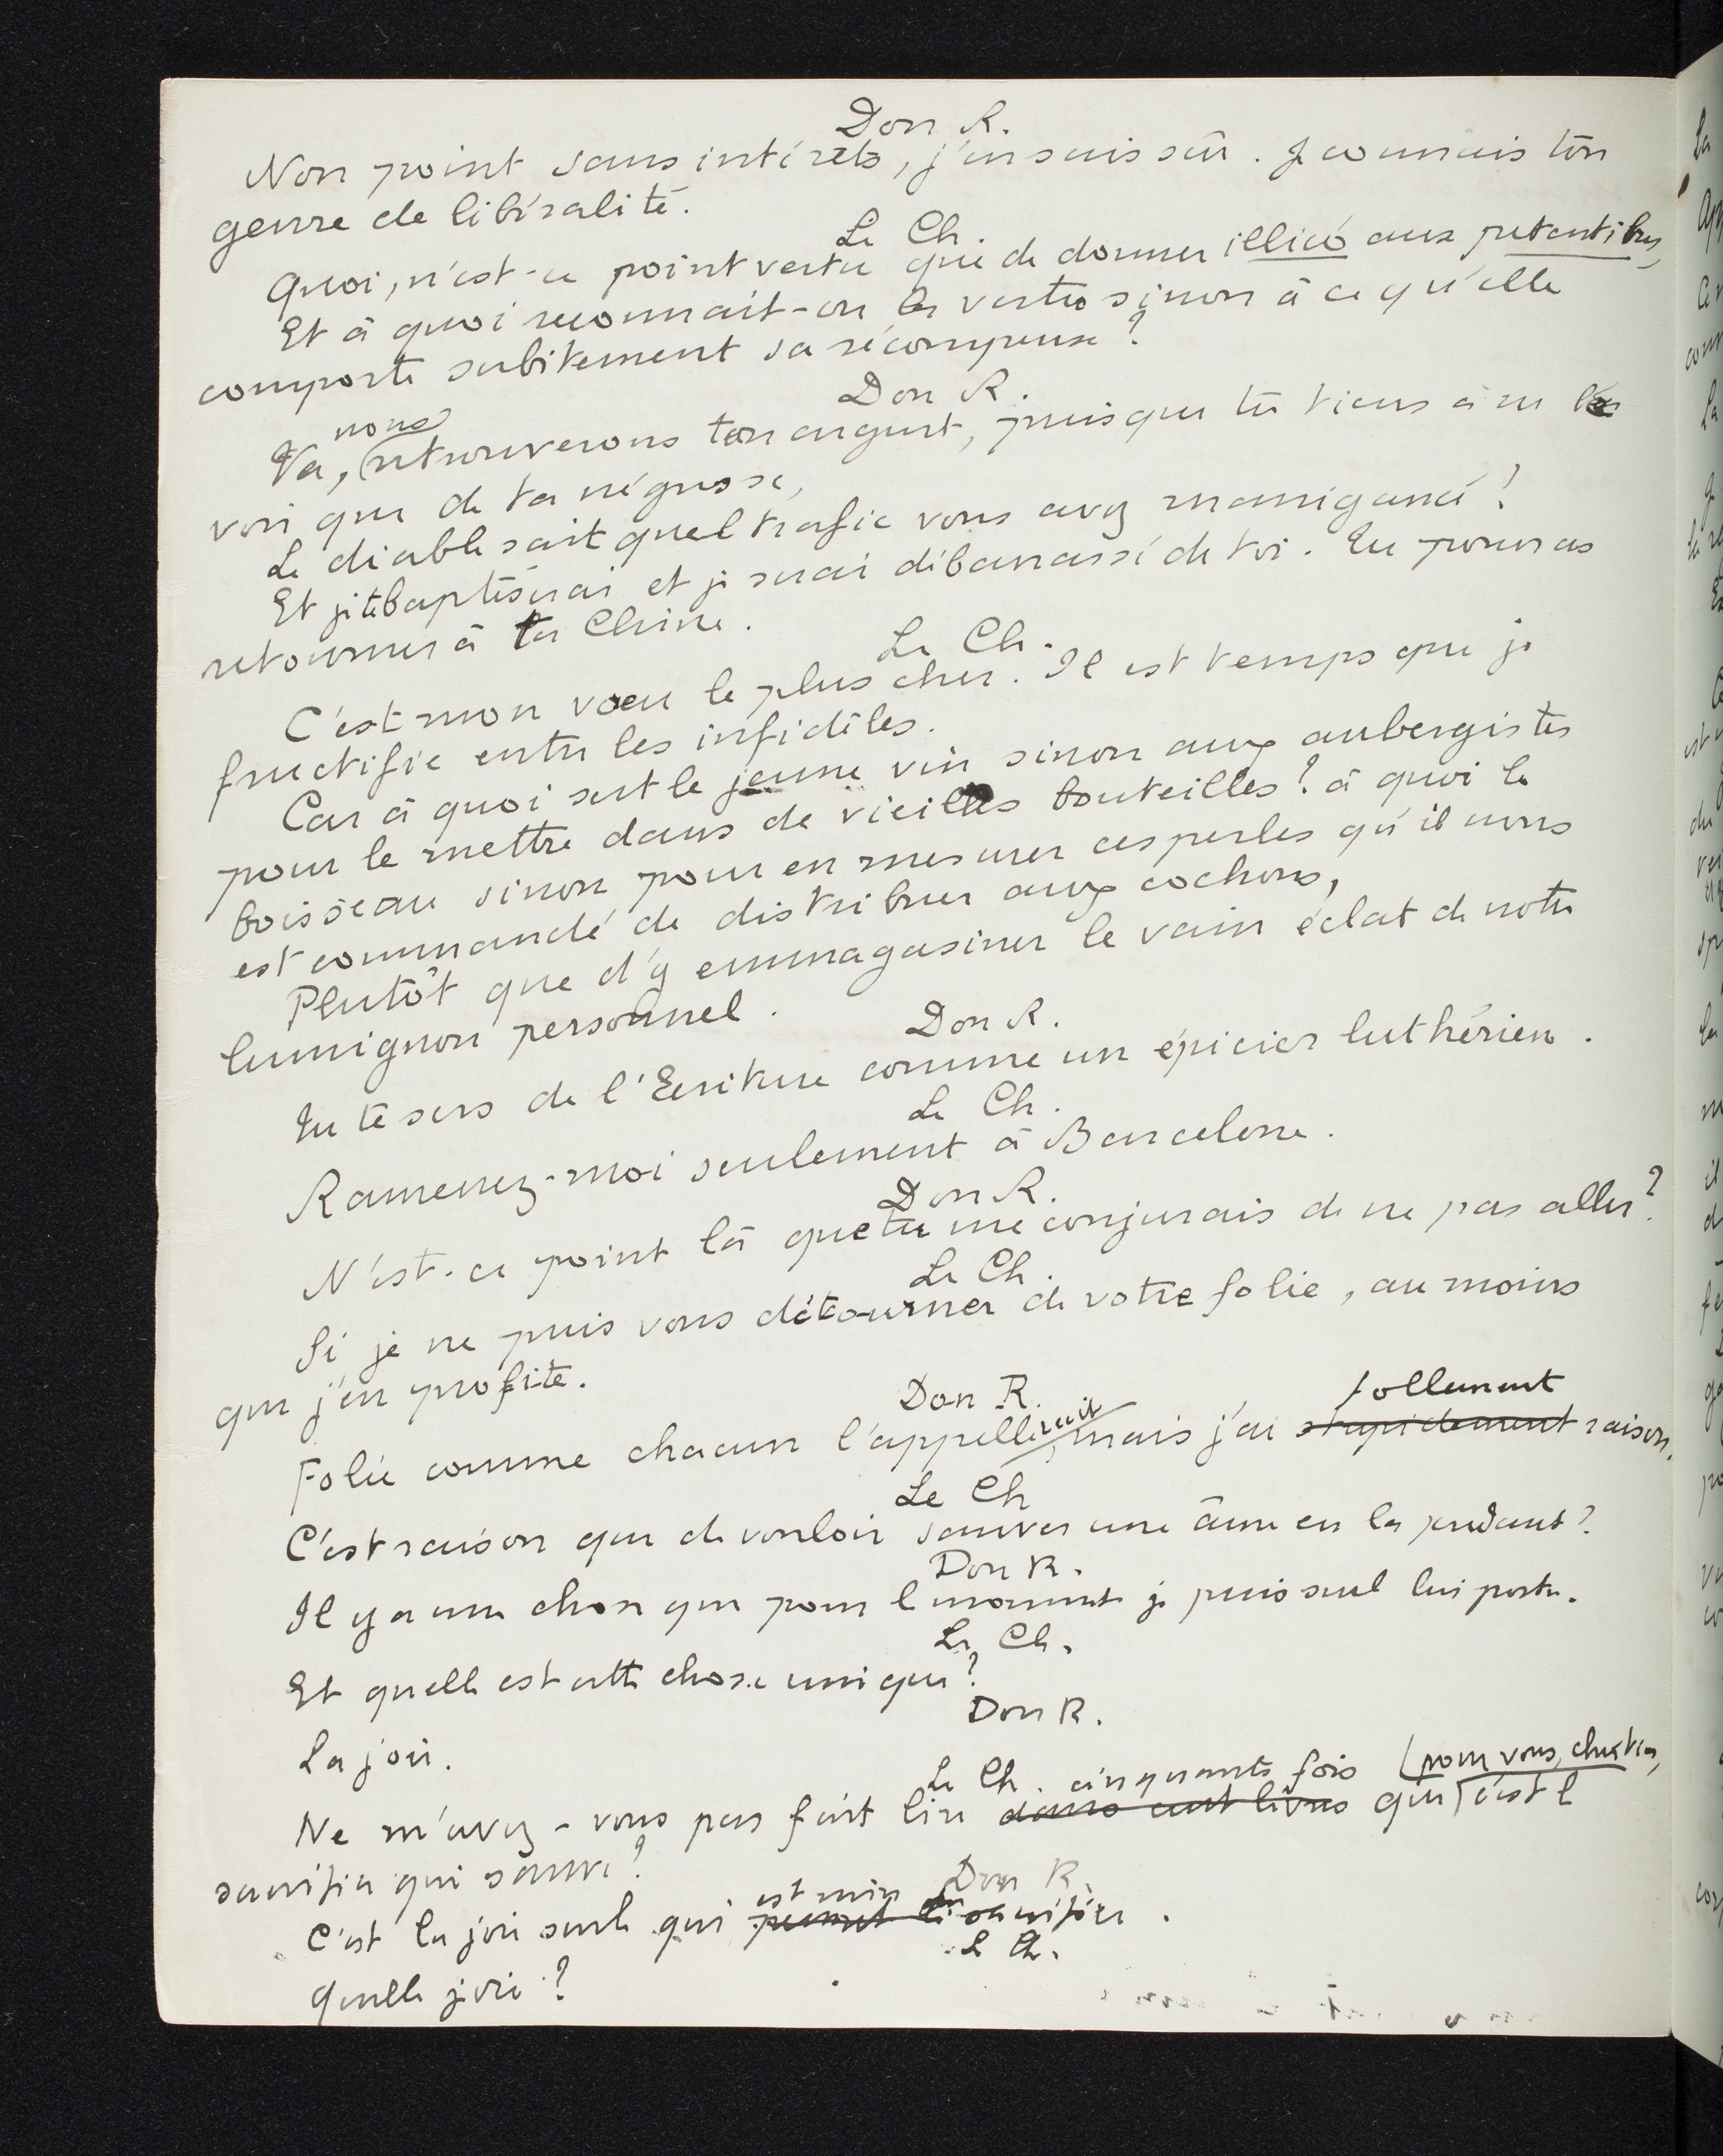 Don R.
Non point sans intérêts, j'en suis sûr. Je connais ton
genre de libéralité.
Le Ch.
Quoi, n'est-ce point vertu que de donner illico aux petentibus,
Et à quoi reconnaît-on la vertu sinon à ce qu'elle
comporte subitement sa récompense ?
Don R.
Va, nous retrouverons ton argent, puisque tu tiens à ne le
voir que de ta négresse,
Le diable sait quel trafic vous avez manigancé !
Et je te baptiserai et je serai débarrassé de toi. Tu pourras
retourner à ta Chine.
Le Ch.
C'est mon vœu le plus cher. Il est temps que je
fructifie entre les infidèles.
Car à quoi sert le jeune vin sinon aux aubergistes
pour le mettre dans de vieilles bouteilles ? à quoi le
boisseau sinon pour en mesurer ces perles qu'il nous
est commandé de distribuer aux cochons,
Plutôt que d'y emmagasiner le vain éclat de notre
lumignon personnel.
Don R.
Tu te sers de l'Ecriture comme un épicier luthérien.
Le Ch.
Ramenez-moi seulement à Barcelone.
Don R.
N'est-ce point là que tu me conjurais de ne pas aller ?
Le Ch.
Si je ne puis vous détourner de votre folie, au moins
que j'en profite.
Don R. follement
Folie comme chacun l'appelle, mais j'ai stupidement raison.
Le Ch
C'est raison que de vouloir sauver une âme en la perdant ?
Don R.
Il y a une chose que pour le moment je puis seul lui porter.
Le Ch.
Et quelle est cette chose unique ?
Don R.
La joie.
Le Ch. cinquante fois pour vous, chrétiens,
Ne m'avez-vous pas fait lire dans cent livres que c'est le
sacrifice qui sauve ?
est mère Don R.
C'est la joie seule qui permet le sacrifice.
Le Ch.
Quelle joie ?